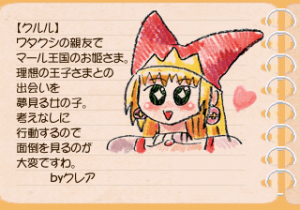 【クルル】
ワタクシの親友で
マール王国のお姫さま。
理想の王子さまとの
出会いを
夢見る女の子。
考えなしに
行動するので
面倒を見るのが
大変ですわ。
byクレア